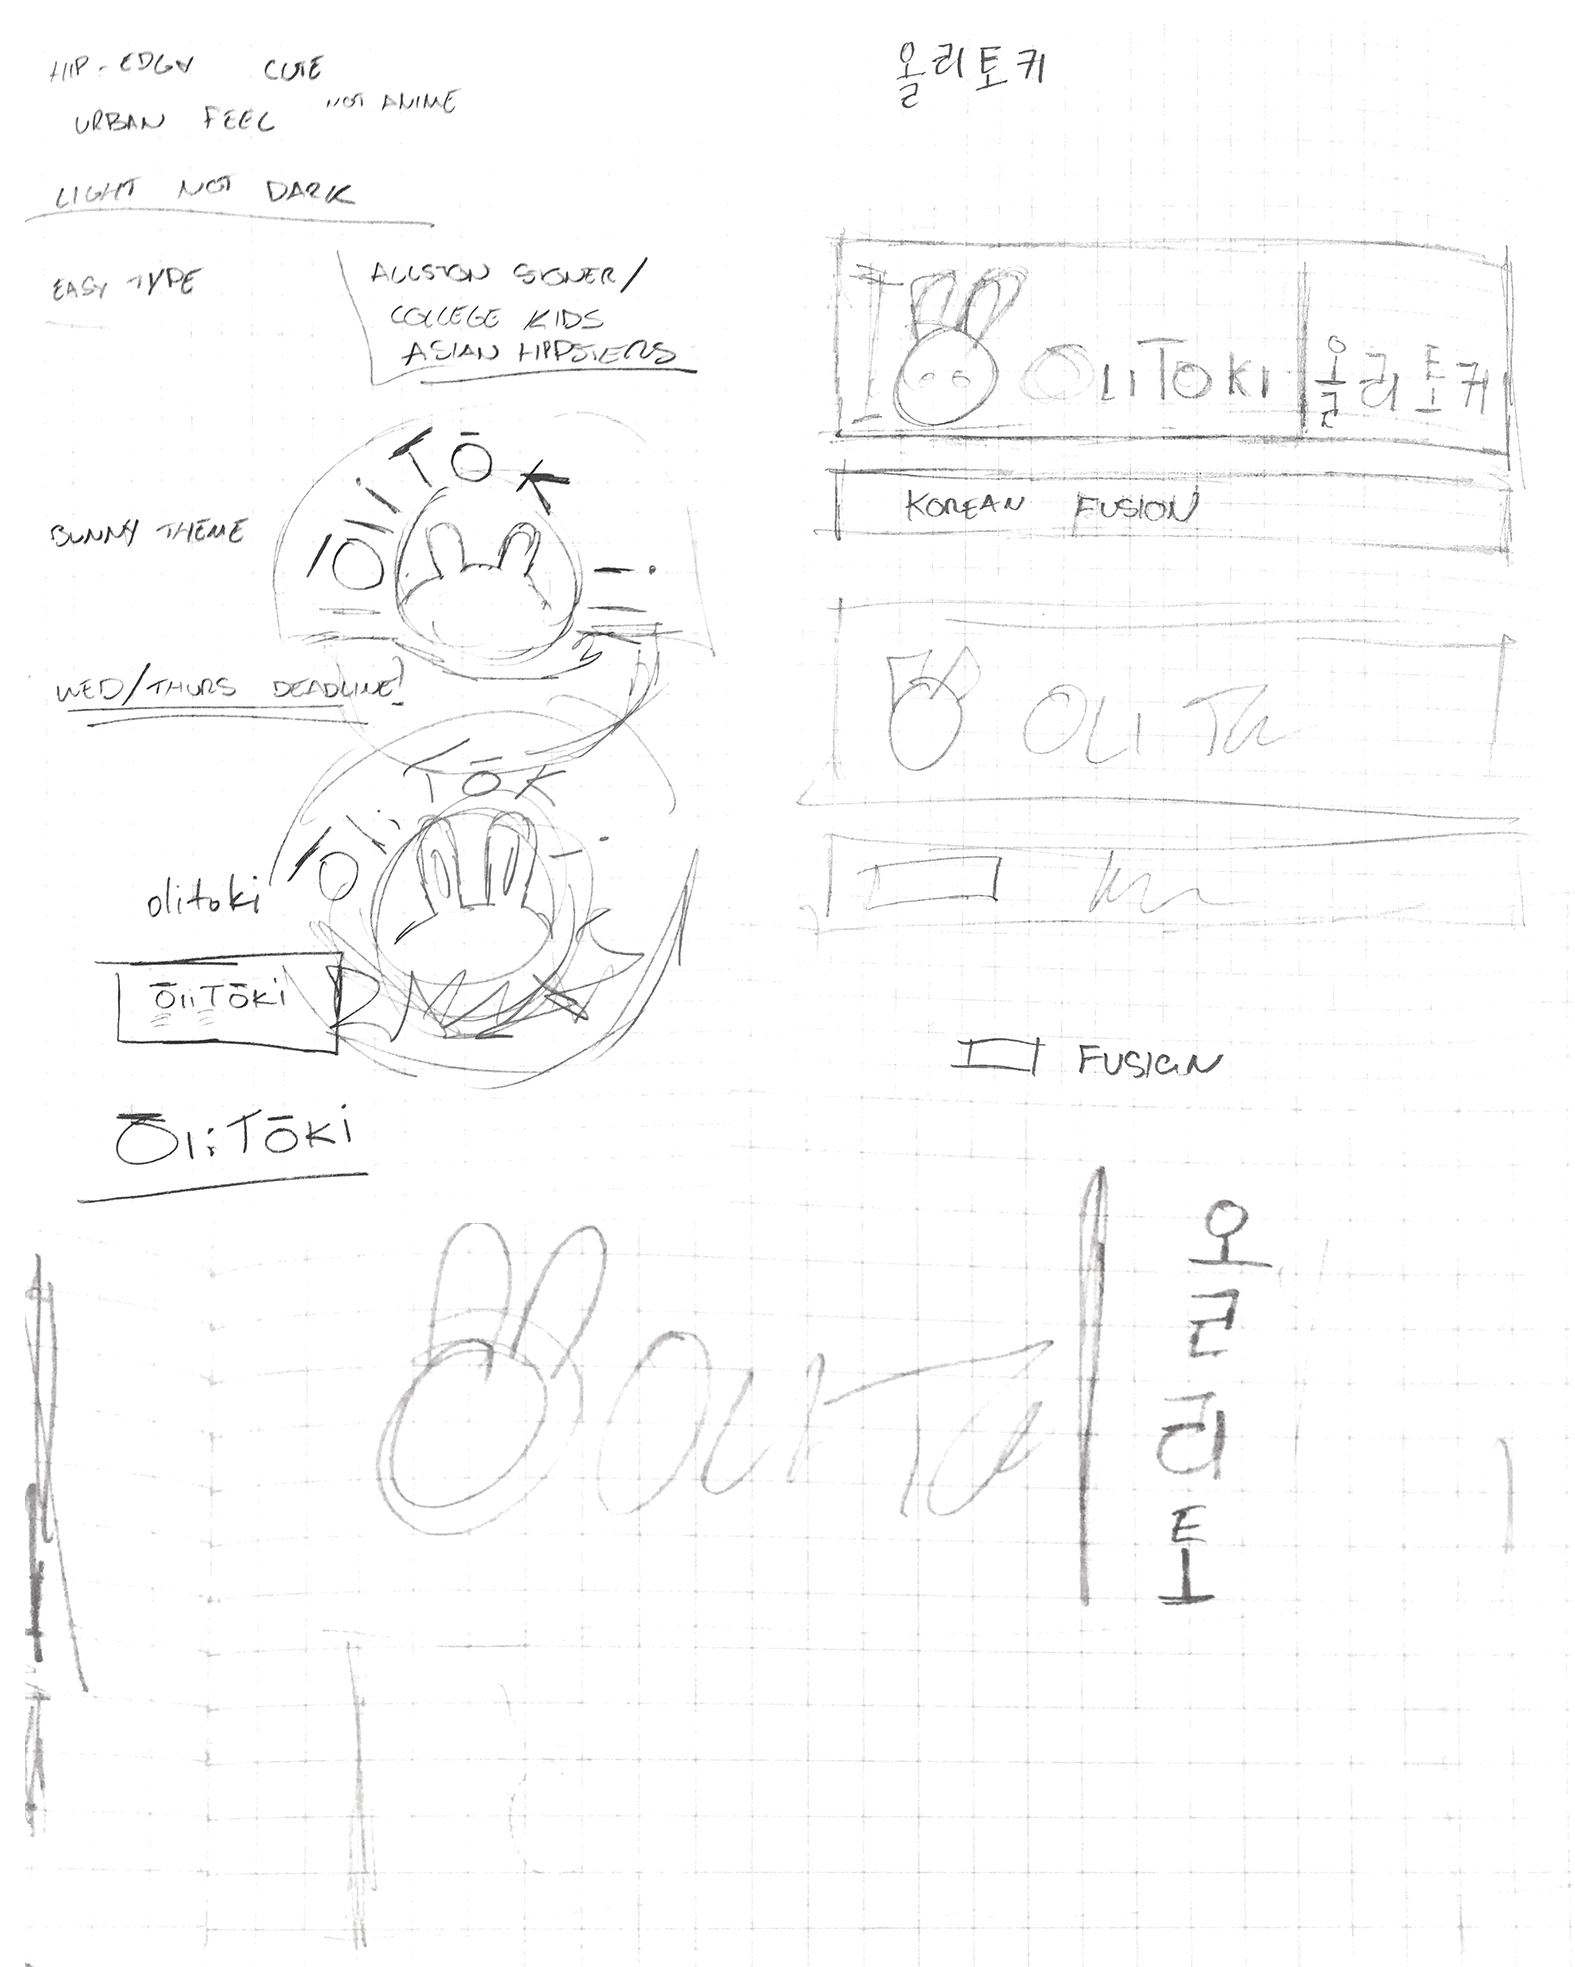 HIP-EDGY CUTE
URBAN FEEL NOT ANIME
LIGHT NOT DARK
EASY TYPE
ALLSTON
COLLEGE KIDS
ASIAN HIPPSTERS
BUNNY THEME
ŌliTŌKi
WED/THURS DEADLINE!
ŌliTŌKi
olitoki
ŌliTōKi
ŌliTōKi
올리토키
OLiToKi 올리토키
KOREAN FUSION
OLiTo
FUSION
OLiTo
올리토